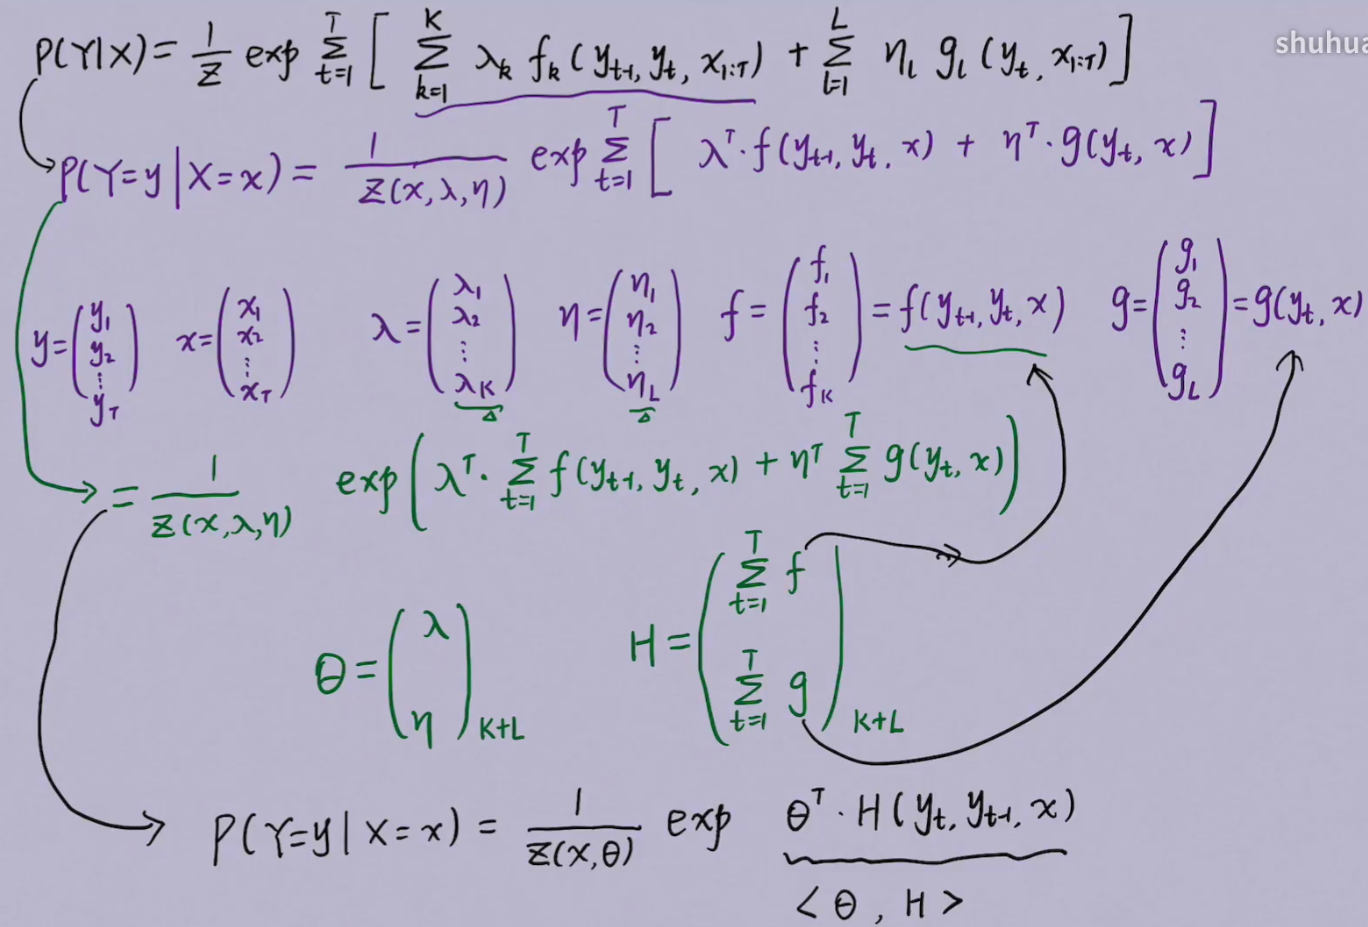 P(Y|X) = 1/Z exp ∑_{t=1}^{T} [ ∑_{k=1}^{K} λ_k f_k (y_{t-1}, y_t, x_{1:T}) + ∑_{l=1}^{L} η_l g_l (y_t, x_{1:T}) ]
shuhua
P(Y=y | X=x) = 1/Z(x,λ,η) exp ∑_{t=1}^{T} [ λ^T · f(y_{t-1}, y_t, x) + η^T · g(y_t, x) ]
y = (y_1 y_2 ⋮ y_T) x = (x_1 x_2 ⋮ x_T) λ = (λ_1 λ_2 ⋮ λ_K) η = (η_1 η_2 ⋮ η_L) f = (f_1 f_2 ⋮ f_K) = f(y_{t-1}, y_t, x) g = (g_1 g_2 ⋮ g_L) = g(y_t, x)
= 1/Z(x,λ,η) exp( λ^T · ∑_{t=1}^{T} f(y_{t-1}, y_t, x) + η^T ∑_{t=1}^{T} g(y_t, x) )
θ = (λ η)_{K+L} H = (∑_{t=1}^{T} f ∑_{t=1}^{T} g)_{K+L}
P(Y=y | X=x) = 1/Z(x,θ) exp θ^T · H(y_t, y_{t-1}, x)
< θ , H >